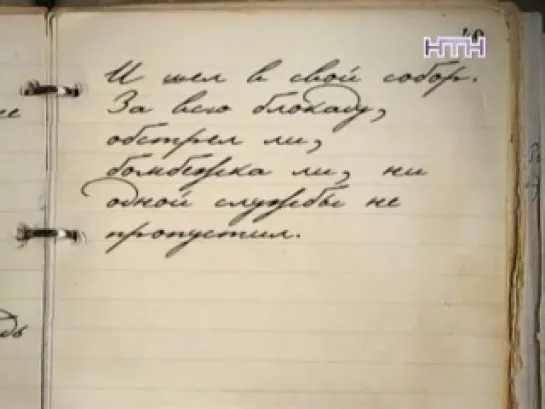 НТН
И шел в свой собор.
За всю блокаду,
обстрел ли,
бомбежка ли, ни
одной службы не
пропустил.